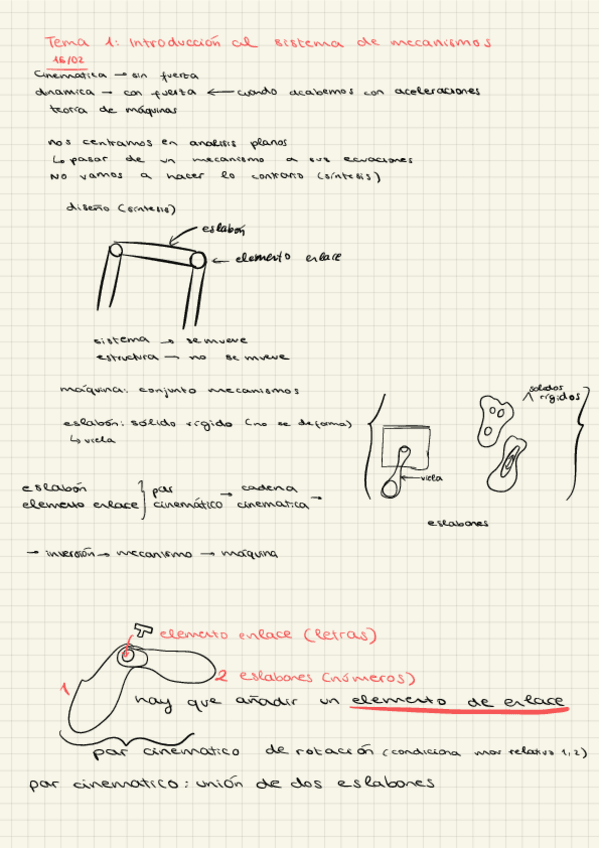 Tema 1: Introducción al sistema de mecanismos
16/02
Cinemática → sin fuerza
dinamica → con fuerza ← cuando acabemos con aceleraciones
teoría de máquinas
nos centramos en analisis planos
↳ pasar de un mecanismo a sus ecuaciones
No vamos a hacer lo contrario (síntesis)
diseño (síntesis)
eslabón
← elemento enlace
sistema → se mueve
estructura → no se mueve
máquina: conjunto mecanismos
solidos
rígidos
eslabón: sólido rígido (no se deforma)
↳ viela
viela
eslabón } par → cadena
elemento enlace } cinemático cinematica →
eslabones
→ inversión → mecanismo → máquina
elemento enlace (letras)
1
2 eslabones (números)
hay que añadir un elemento de enlace
par cinematico de rotación (condiciona mov relativo 1,2)
par cinematico: unión de dos eslabones